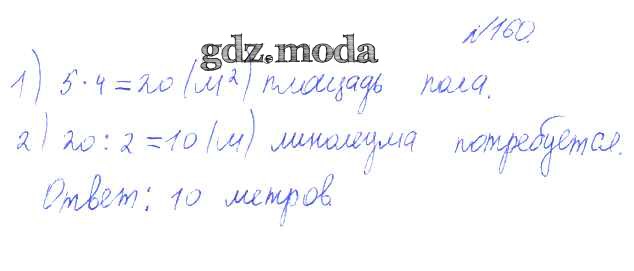 №160.
gdz.moda
1) 5·4=20 (м²) площадь пола.
2) 20:2=10 (м) линолеума потребуется.
Ответ: 10 метров.